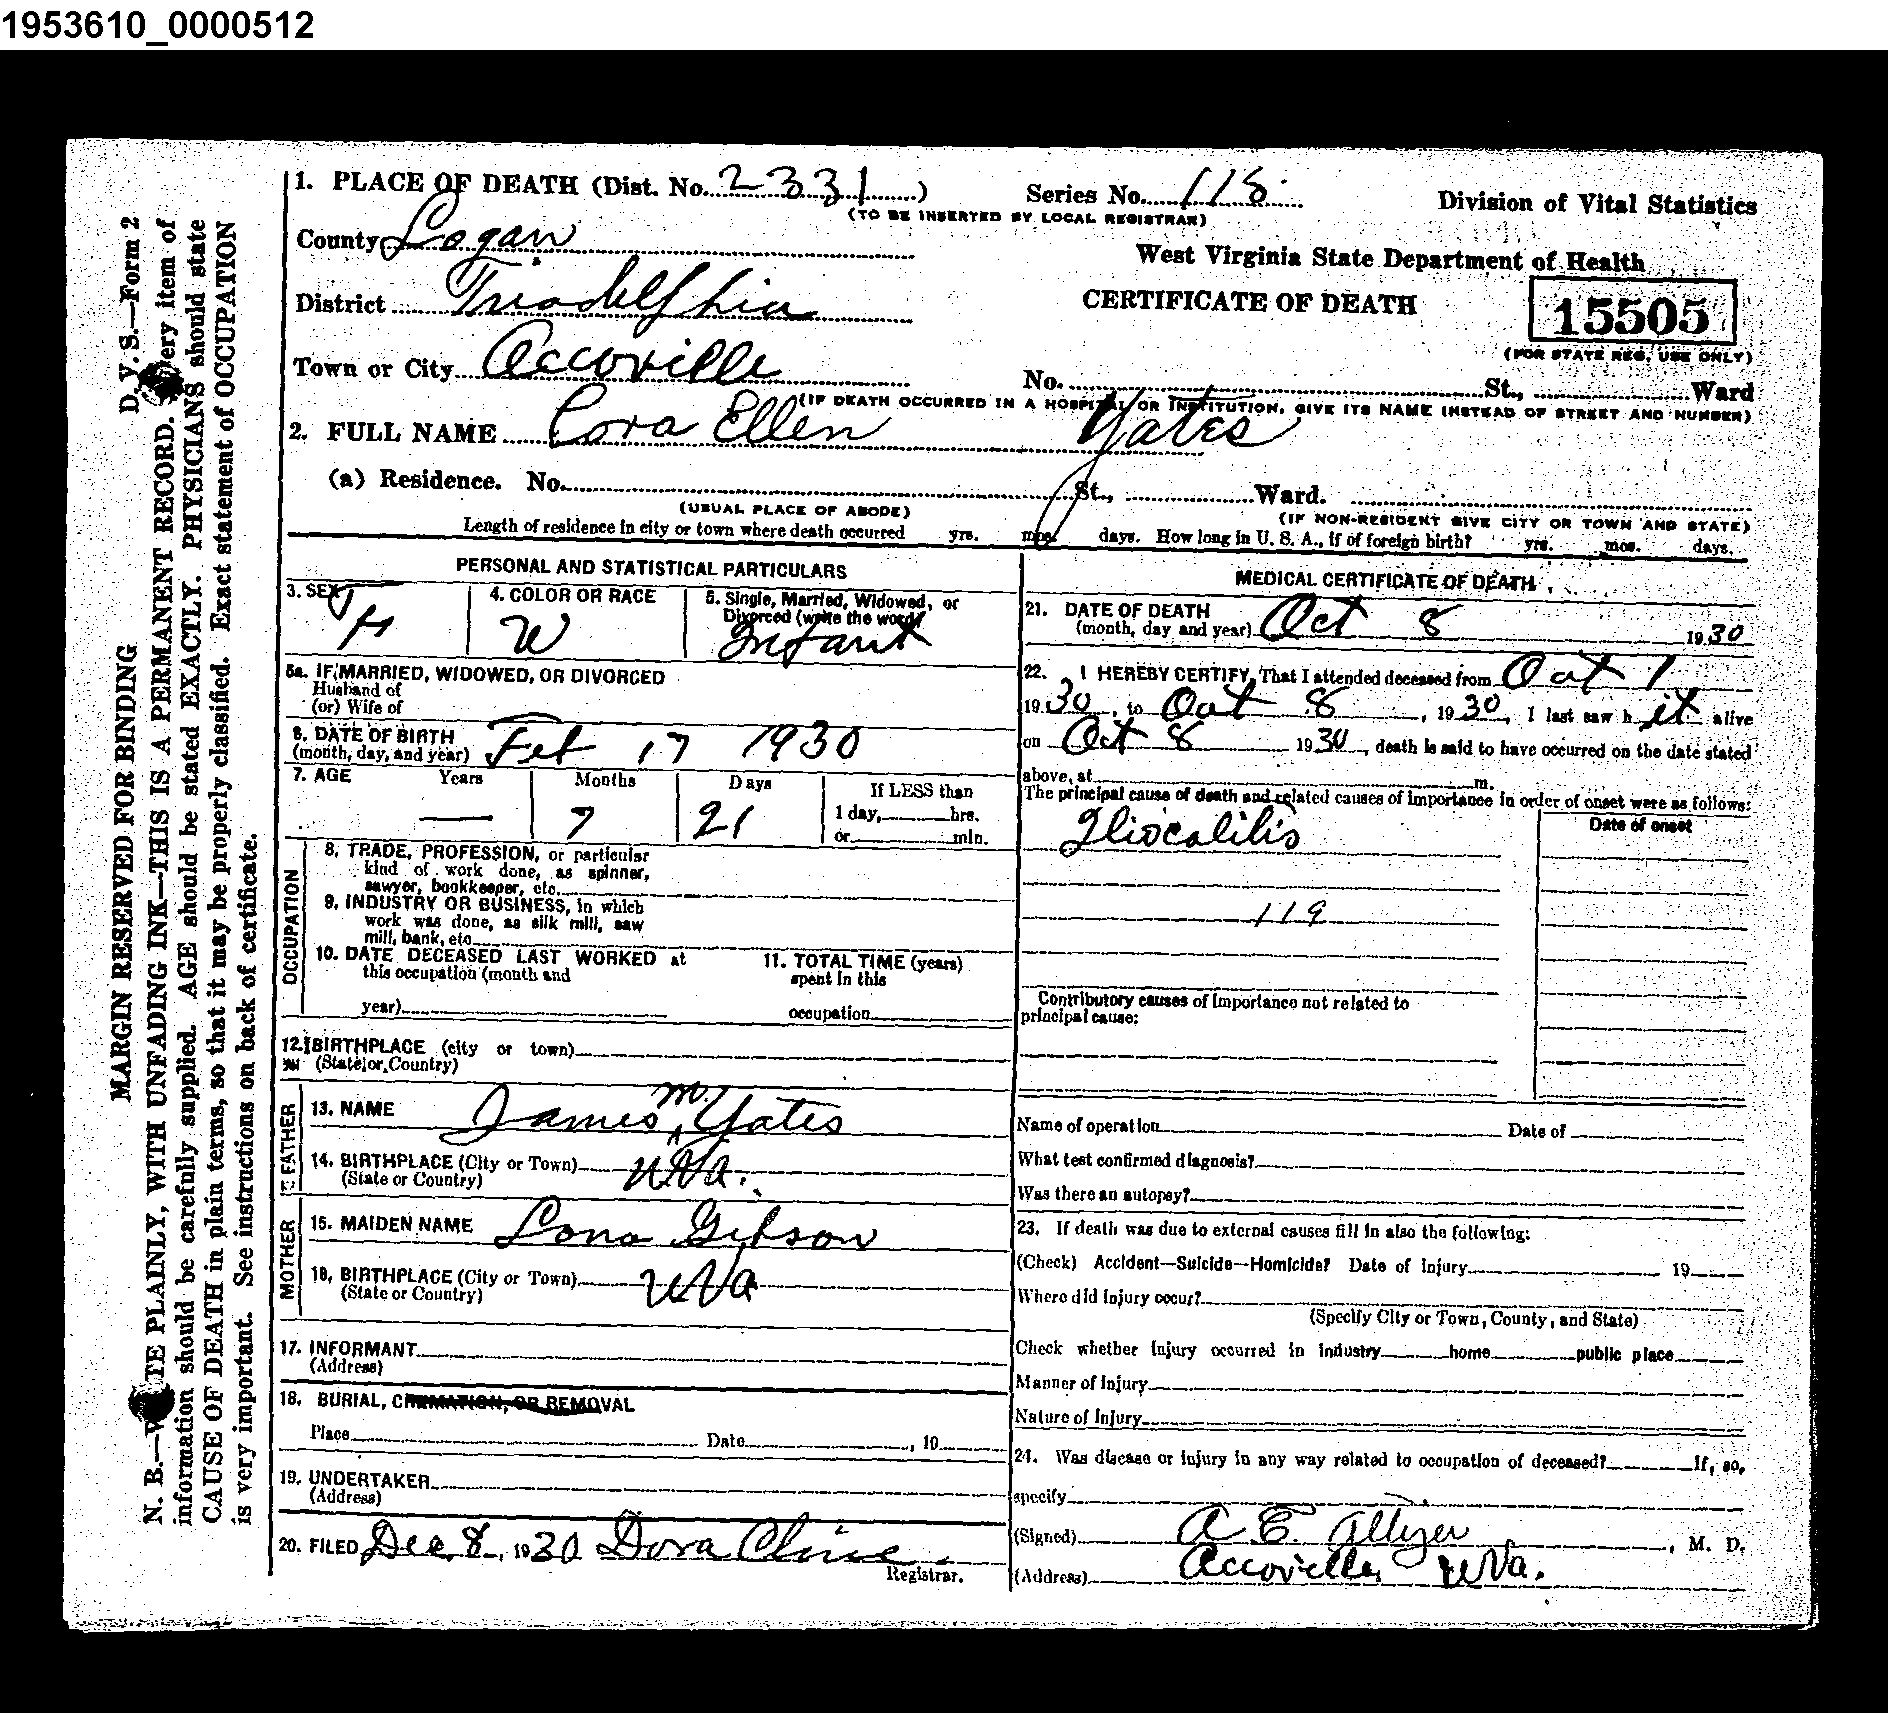 1953610_0000512
1. PLACE OF DEATH (Dist. No. 2331)
Series No. 118.
Division of Vital Statistics
(TO BE INSERTED BY LOCAL REGISTRAR)
County Logan
West Virginia State Department of Health
District Triadelphia
CERTIFICATE OF DEATH
15505
(FOR STATE REG. USE ONLY)
Town or City Accoville
No. St., Ward
(IF DEATH OCCURRED IN A HOSPITAL OR INSTITUTION, GIVE ITS NAME INSTEAD OF STREET AND NUMBER)
2. FULL NAME Cora Ellen Yates
(a) Residence. No. St., Ward.
(USUAL PLACE OF ABODE)
(IF NON-RESIDENT GIVE CITY OR TOWN AND STATE)
Length of residence in city or town where death occurred yrs. mos. days. How long in U. S. A., if of foreign birth? yrs. mos. days.
PERSONAL AND STATISTICAL PARTICULARS
3. SEX
4. COLOR OR RACE W
5. Single, Married, Widowed, or
Divorced (write the word)
Infant
5a. IF MARRIED, WIDOWED, OR DIVORCED
Husband of
(or) Wife of
6. DATE OF BIRTH
(month, day, and year) Feb 17 1930
7. AGE Years Months Days If LESS than
— 7 21 1 day, hrs.
or min.
OCCUPATION
8. TRADE, PROFESSION, or particular
kind of work done, as spinner,
sawyer, bookkeeper, etc.
9. INDUSTRY OR BUSINESS, in which
work was done, as silk mill, saw
mill, bank, etc.
10. DATE DECEASED LAST WORKED at
this occupation (month and
year)
11. TOTAL TIME (years)
spent in this
occupation
12. BIRTHPLACE (city or town)
(State or Country)
FATHER
13. NAME James M. Yates
14. BIRTHPLACE (City or Town) W Va.
(State or Country)
MOTHER
15. MAIDEN NAME Lona Gibson
16. BIRTHPLACE (City or Town) W Va
(State or Country)
17. INFORMANT
(Address)
18. BURIAL, CREMATION, OR REMOVAL
Place Date , 19
19. UNDERTAKER
(Address)
20. FILED Dec 8, 1930 Dora Cline.
Registrar.
MEDICAL CERTIFICATE OF DEATH
21. DATE OF DEATH
(month, day and year) Oct 8 1930
22. I HEREBY CERTIFY, That I attended deceased from Oct 1
1930, to Oct 8, 1930, I last saw h it alive
on Oct 8 1930, death is said to have occurred on the date stated
above, at m.
The principal cause of death and related causes of importance in order of onset were as follows:
Date of onset
Iliocolitis
119
Contributory causes of importance not related to
principal cause:
Name of operation Date of
What test confirmed diagnosis?
Was there an autopsy?
23. If death was due to external causes fill in also the following:
(Check) Accident—Suicide—Homicide? Date of injury 19
Where did injury occur?
(Specify City or Town, County, and State)
Check whether injury occurred in industry home public place
Manner of Injury
Nature of Injury
24. Was disease or injury in any way related to occupation of deceased? If, so,
specify
(Signed) A. E. , M. D.
(Address) Accoville, W Va.
D. V. S.—Form 2
MARGIN RESERVED FOR BINDING
N. B.—WRITE PLAINLY, WITH UNFADING INK—THIS IS A PERMANENT RECORD. Every item of
information should be carefully supplied. AGE should be stated EXACTLY. PHYSICIANS should state
CAUSE OF DEATH in plain terms, so that it may be properly classified. Exact statement of OCCUPATION
is very important. See instructions on back of certificate.